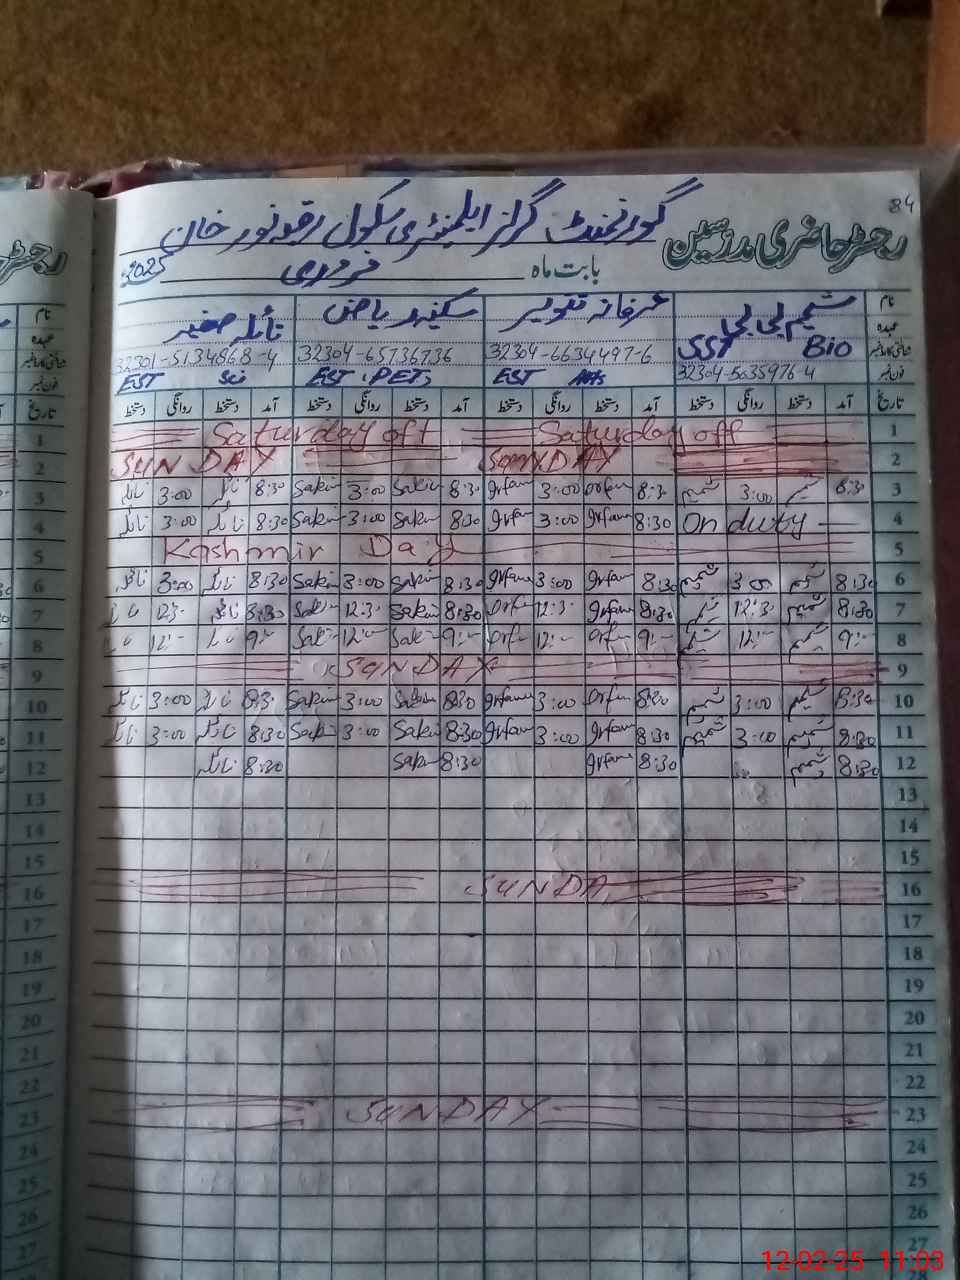 84
رجسٹر حاضری مدرسین گورنمنٹ گرلز ایلیمنٹری سکول رقبہ نور خان
بابت ماہ فروری 2025
نام شمیم بی بی عرفانہ تنویر سکینہ ریاض نائلہ صغیر
عہدہ SST Bio
شناختی کارڈ نمبر 32304-5035976-4 32304-6634497-6 32304-65736736 32301-5134868-4
فون نمبر EST Arts EST PET EST Sci
تاریخ آمد دستخط روانگی دستخط آمد دستخط روانگی دستخط آمد دستخط روانگی دستخط آمد دستخط روانگی دستخط
1 Saturday off Saturday off
2 SUNDAY SUNDAY
3 8:30 شمیم 3:00 شمیم 8:30 Irfana 3:00 Irfana 8:30 Sakin 3:00 Sakin 8:30 نائلہ 3:00 نائلہ
4 On duty 8:30 Irfana 3:00 Irfana 8:30 Sakin 3:00 Sakin 8:30 نائلہ 3:00 نائلہ
5 Kashmir Day
6 8:30 شمیم 3:00 شمیم 8:30 Irfana 3:00 Irfana 8:30 Sakin 3:00 Sakin 8:30 نائلہ 3:00 نائلہ
7 8:30 شمیم 12:30 شمیم 8:30 Irfana 12:30 Irfana 8:30 Sakin 12:30 Sakin 8:30 نائلہ 12:30
8 9:00 شمیم 12:00 شمیم 9:00 Irfana 12:00 Irfana 9:00 Sakin 12:00 Sakin 9:00 12:00
9 SUNDAY
10 8:30 شمیم 3:00 شمیم 8:30 Irfana 3:00 Irfana 8:30 Sakin 3:00 Sakin 8:30 نائلہ 3:00 نائلہ
11 8:30 شمیم 3:00 شمیم 8:30 Irfana 3:00 Irfana 8:30 Sakin 3:00 Sakin 8:30 نائلہ 3:00 نائلہ
12 8:30 شمیم 8:30 Irfana 8:30 Sakin 8:30 نائلہ
13
14
15
16 SUNDA
17
18
19
20
21
22
23 SUNDAY
24
25
26
27
12-02-25 11:03